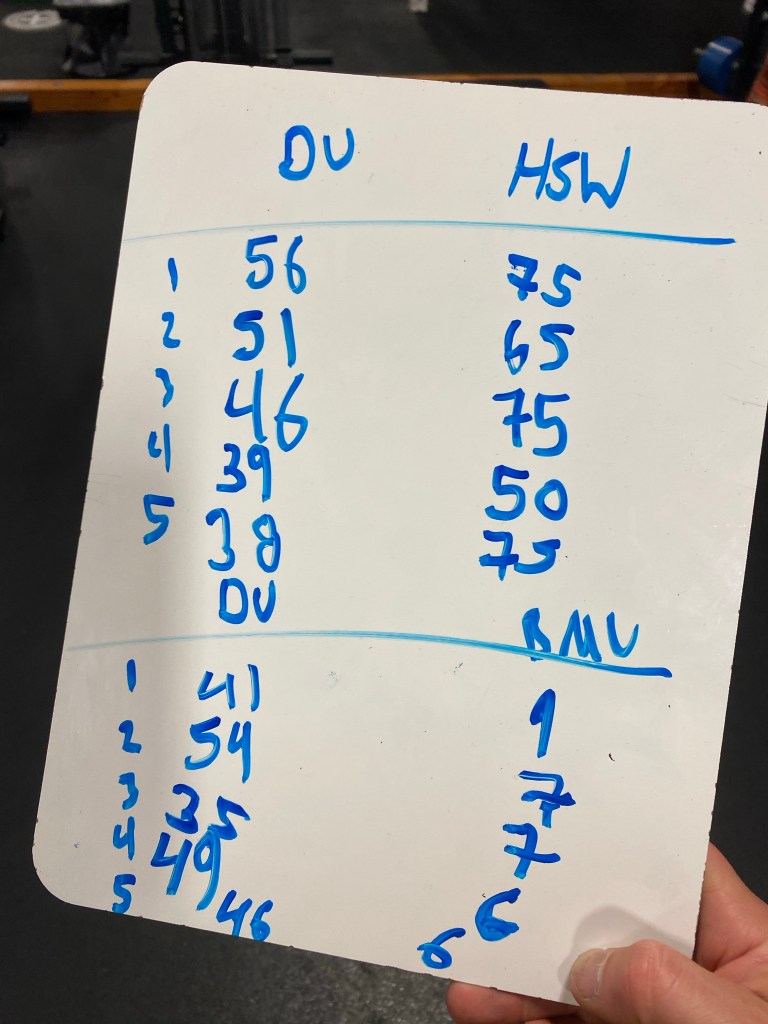 DU HSW
1 56 75
2 51 65
3 46 75
4 39 50
5 38 75
DU BMU
1 41 9
2 54 7
3 35 7
4 49 6
5 46 6